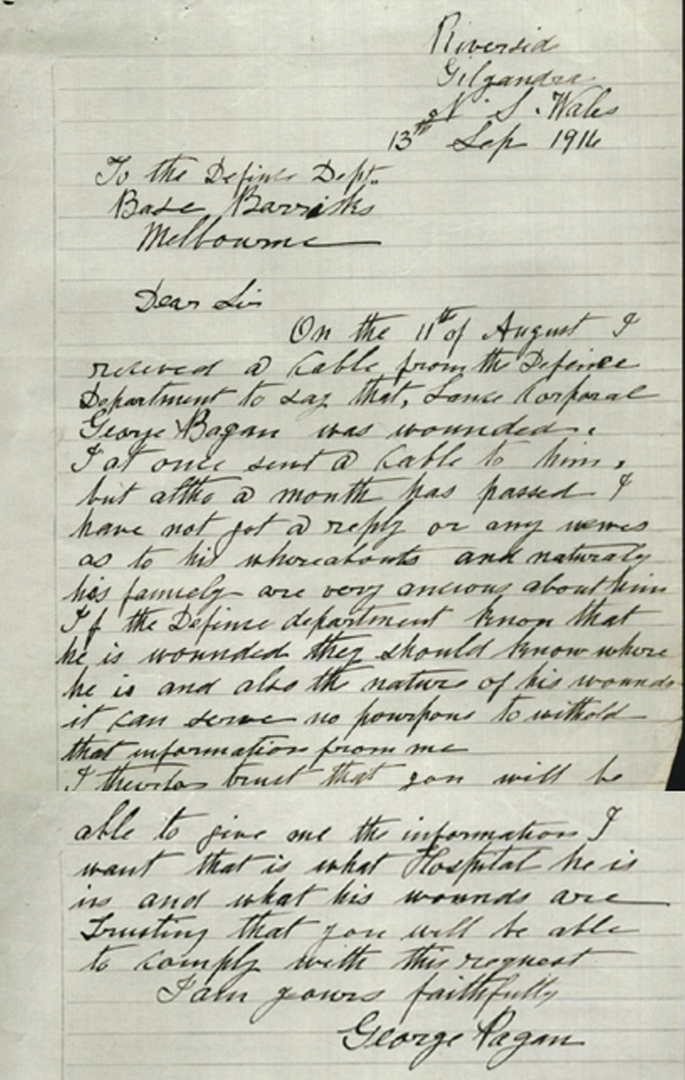 Riversid
Gilgandra
N. S. Wales
13th Sep 1916
To the Defince Dept.
Base Barricks
Melbourne
Dear Sir
On the 11th of August I
receved a cable from the Defence
Department to say that, Lance Corporal
George Pagan was wounded.
I at once sent a cable to him,
but altho a month has passed I
have not got a reply or any newes
as to his whereabouts and naturaly
his famiely are very ancious about him
If the Defince department know that
he is wounded they should know where
he is and also the nature of his wounds
it can serve no pourpous to withold
that information from me
I therefor trust that you will be
able to give me the information I
want that is what Hospital he is
in and what his wounds are
Trusting that you will be able
to comply with this request
I am yours faithfully
George Pagan